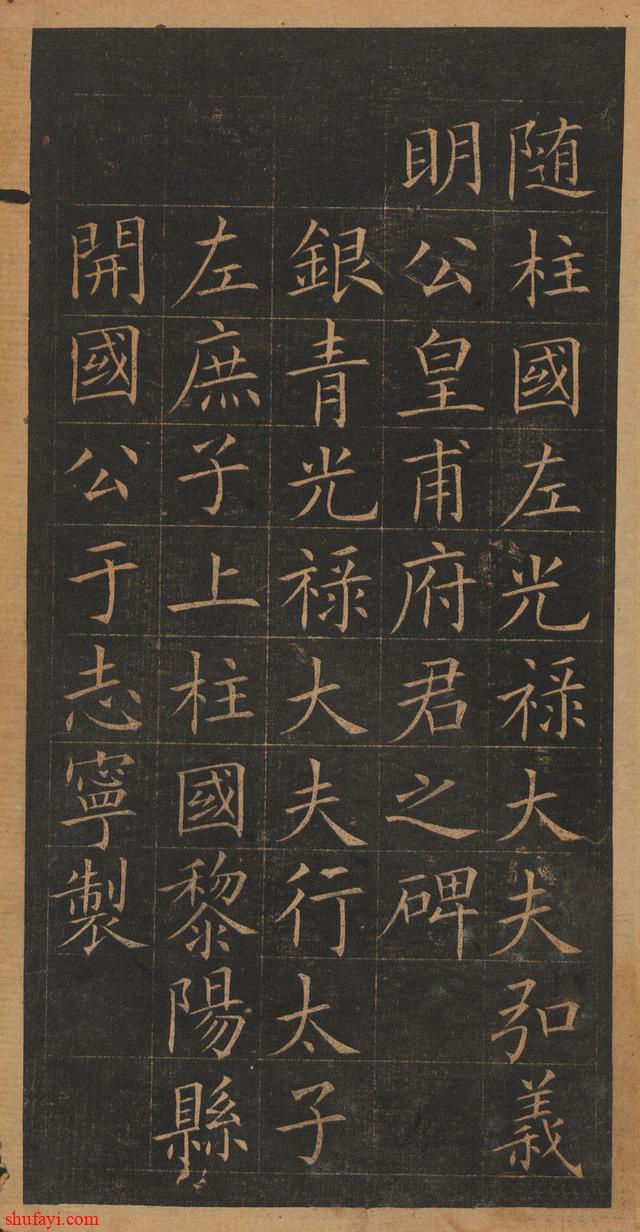 随柱國左光禄大夫弘義
明公皇甫府君之碑
銀青光禄大夫行太子
左庶子上柱國黎陽縣
開國公于志寧製
shufayi.com